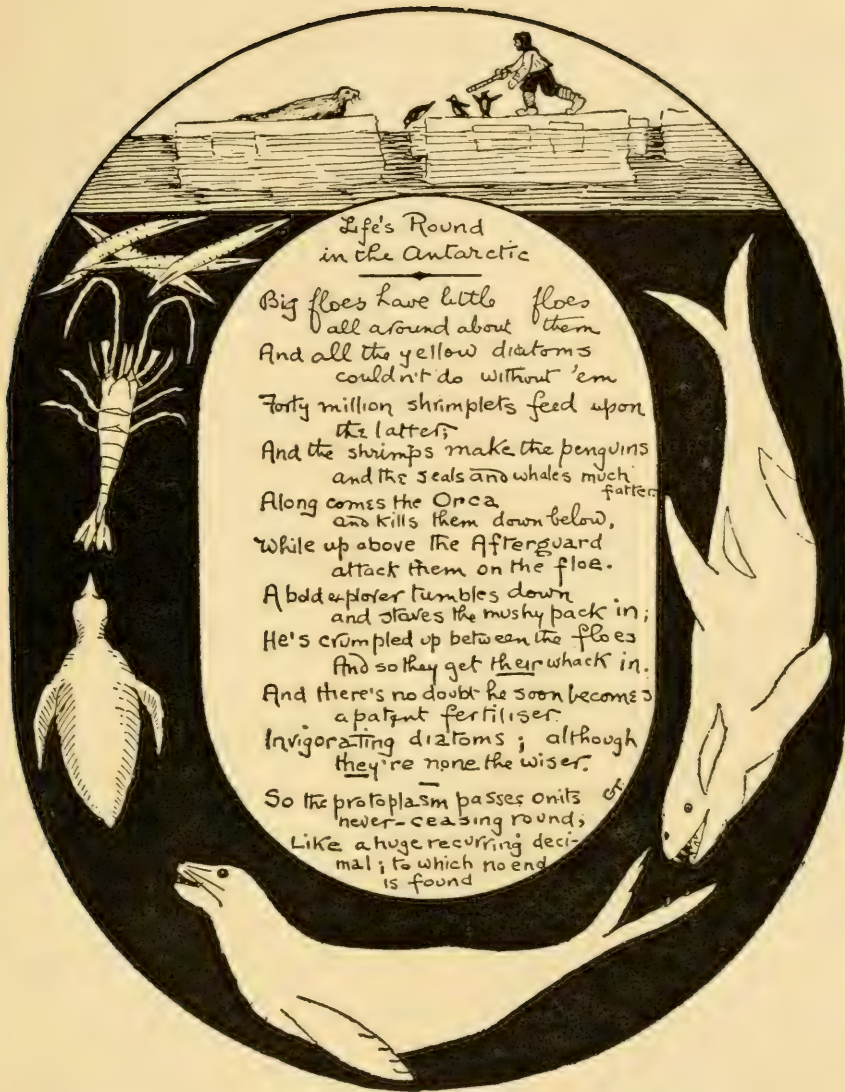 Life's Round
in the Antarctic
Big floes have little floes
all around about them
And all the yellow diatoms
couldn't do without 'em
Forty million shrimplets feed upon
the latter;
And the shrimps make the penguins
and the seals and whales much
fatter.
Along comes the Orca
and kills them down below,
While up above the Afterguard
attack them on the floe.
A bold explorer tumbles down
and staves the mushy pack in;
He's crumpled up between the floes
And so they get their whack in.
And there's no doubt he soon becomes
a patent fertiliser.
Invigorating diatoms ; although
they're none the wiser.
So the protoplasm passes on its
never-ceasing round;
Like a huge recurring deci-
mal ; to which no end
is found